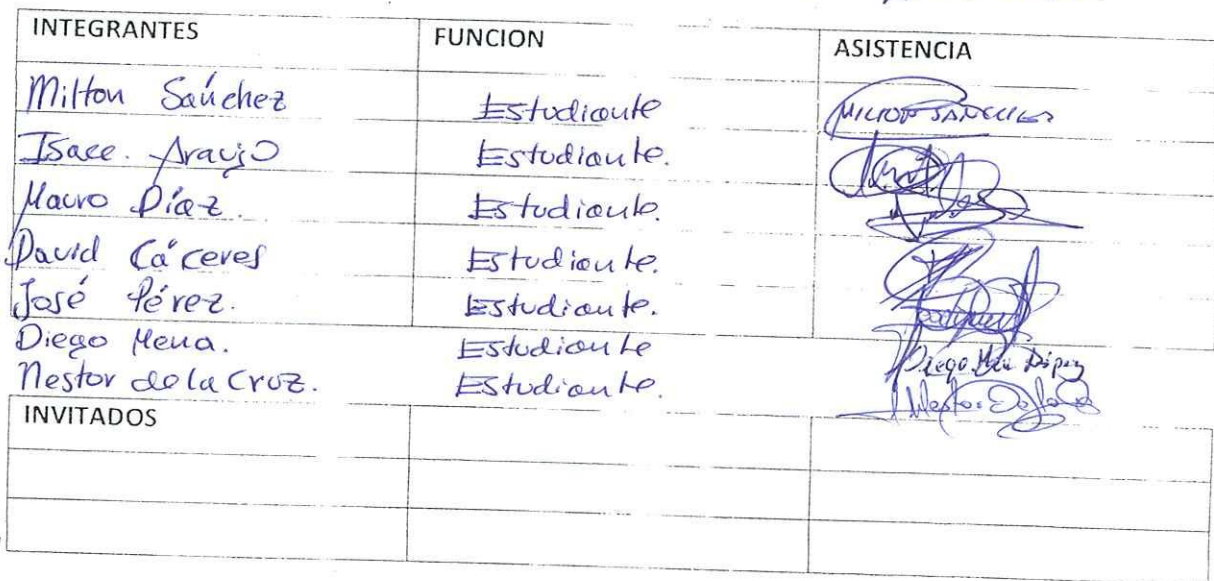 INTEGRANTES FUNCION ASISTENCIA
Milton Sánchez Estudiante MILTON SANCHEZ
Isace. Araujo Estudiante.
Mauro Díaz. Estudiante.
David Cáceres Estudiante.
José Pérez. Estudiante.
Diego Mena. Estudiante Diego
Nestor de la Cruz. Estudiante. Nestor De la
INVITADOS